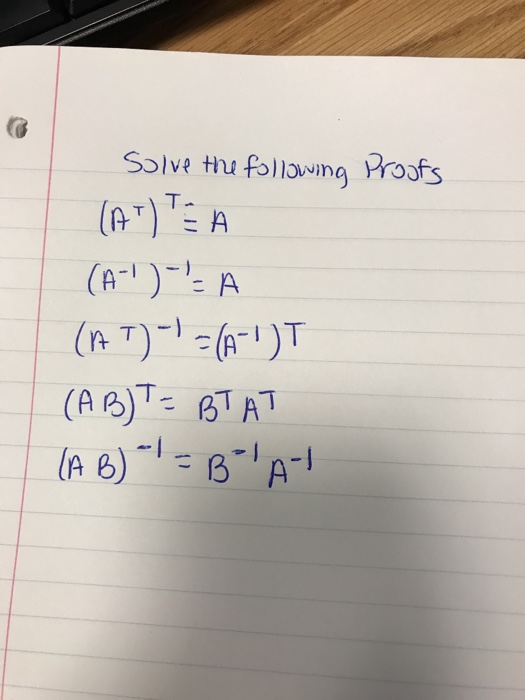 Solve the following Proofs
(Aᵀ)ᵀ = A
(A⁻¹)⁻¹ = A
(Aᵀ)⁻¹ = (A⁻¹)ᵀ
(AB)ᵀ = Bᵀ Aᵀ
(AB)⁻¹ = B⁻¹ A⁻¹